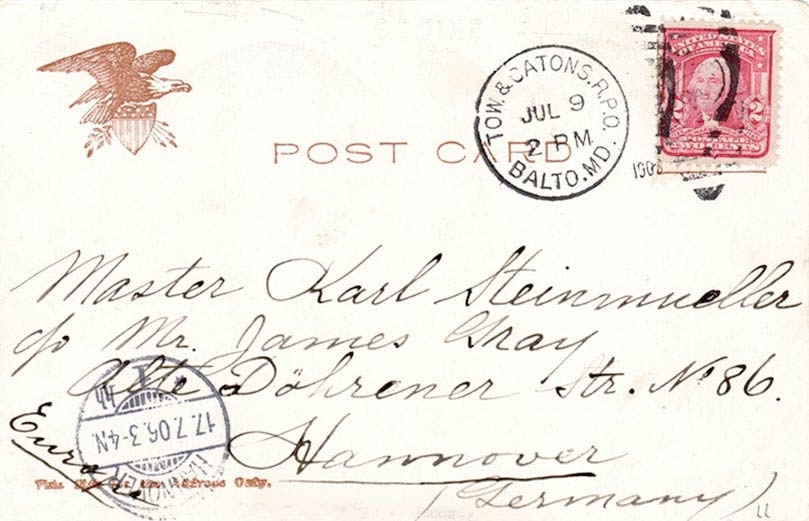 TOW. & CATONS. R.P.O.
JUL 9
2 PM
BALTO. MD.
UNITED STATES
OF AMERICA
2 2
POSTAGE
TWO CENTS
POST CARD
Master Karl Steinmueller
c/o Mr. James Gray
Alte Döhrener Str. No 86.
Hannover
(Germany)
Europe
HANNOVER
17.7.06.3-4N.
This Side for the Address Only.